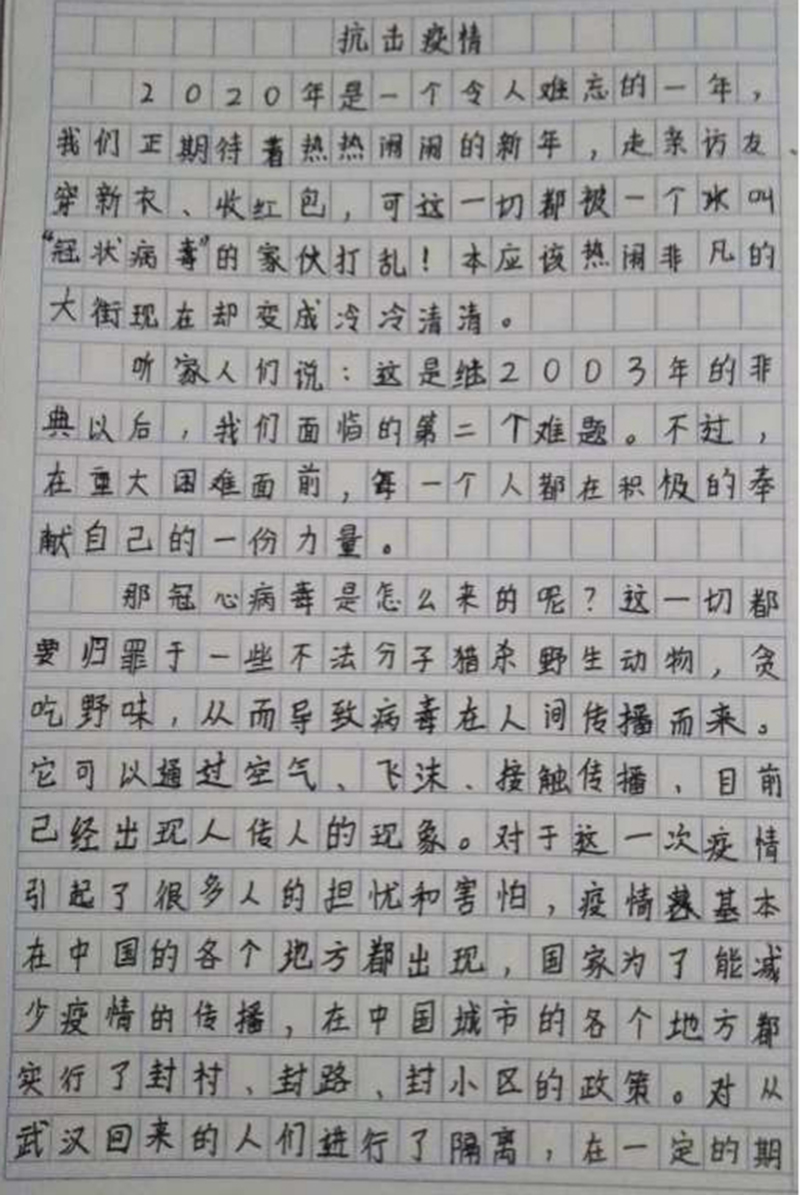 抗击疫情
2020年是一个令人难忘的一年，
我们正期待着热热闹闹的新年，走亲访友、
穿新衣、收红包，可这一切都被一个叫
“冠状病毒”的家伙打乱！本应该热闹非凡的
大街现在却变成冷冷清清。
听家人们说：这是继2003年的非
典以后，我们面临的第二个难题。不过，
在重大困难面前，每一个人都在积极的奉
献自己的一份力量。
那冠心病毒是怎么来的呢？这一切都
要归罪于一些不法分子猎杀野生动物，贪
吃野味，从而导致病毒在人间传播而来。
它可以通过空气、飞沫、接触传播、目前
已经出现人传人的现象。对于这一次疫情
引起了很多人的担忧和害怕，疫情基本
在中国的各个地方都出现，国家为了能减
少疫情的传播，在中国城市的各个地方都
实行了封村、封路、封小区的政策。对从
武汉回来的人们进行了隔离，在一定的期